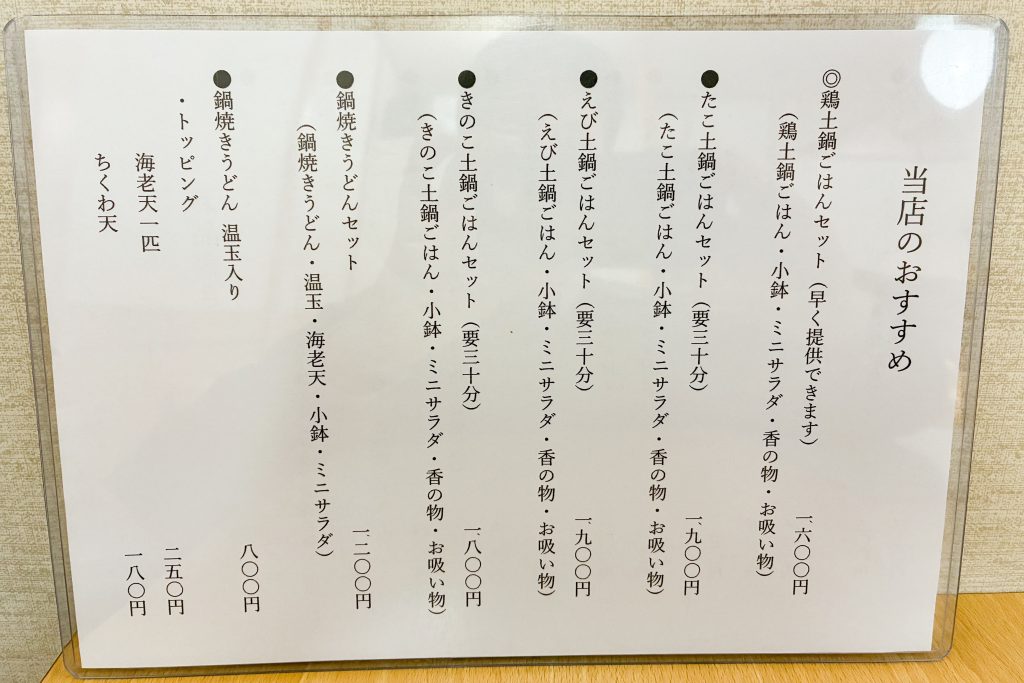 当店のおすすめ
◎鶏土鍋ごはんセット（早く提供できます） 一、六〇〇円
（鶏土鍋ごはん・小鉢・ミニサラダ・香の物・お吸い物）
●たこ土鍋ごはんセット（要三十分） 一、九〇〇円
（たこ土鍋ごはん・小鉢・ミニサラダ・香の物・お吸い物）
●えび土鍋ごはんセット（要三十分） 一、九〇〇円
（えび土鍋ごはん・小鉢・ミニサラダ・香の物・お吸い物）
●きのこ土鍋ごはんセット（要三十分） 一、八〇〇円
（きのこ土鍋ごはん・小鉢・ミニサラダ・香の物・お吸い物）
●鍋焼きうどんセット 一、二〇〇円
（鍋焼きうどん・温玉・海老天・小鉢・ミニサラダ）
●鍋焼きうどん 温玉入り 八〇〇円
・トッピング
海老天一匹 二五〇円
ちくわ天 一八〇円